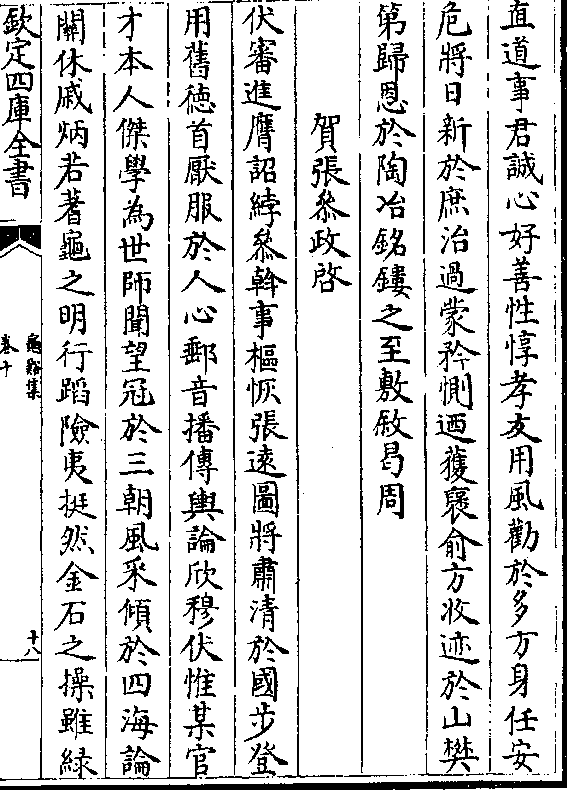 直道事君誠心好善性惇孝友用風勸於多方身任安
危將日新於庶治過蒙矜惻迺獲褒俞方收迹於山樊
第歸恩於陶冶銘鏤之至敷敘曷周
賀張叅政啓
伏審進膺詔綍叅斡事樞恢張遠圖將肅清於國步登
用舊徳首厭服於人心郵音播傳輿論欣穆伏惟某官
才本人傑學為世師聞望冠於三朝風采傾於四海論
關休戚炳若蓍龜之明行蹈險夷挺然金石之操雖緑
欽定四庫全書
龜谿集
卷十
十八